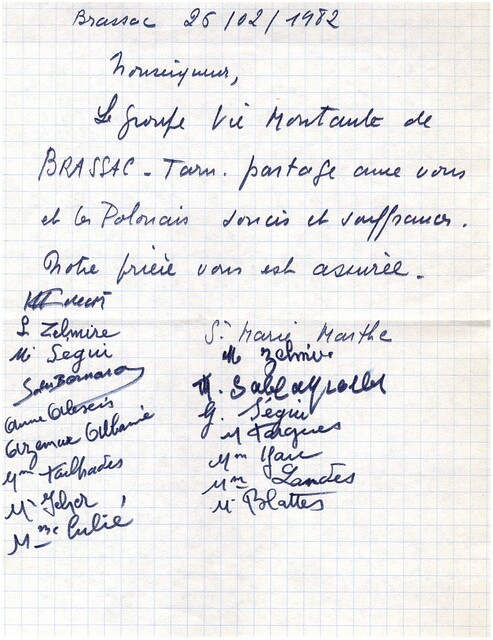 Brassac 26/02/1982
Monseigneur,
Le groupe Vie Montante de
BRASSAC - Tarn. partage avec vous
et les Polonais soucis et souffrances.
Notre prière vous est assurée.
L Zelmire
Mr Segui
Anne Alexis
Azemar Albanie
Mme Tailhades
Mme Culié
Sr Marie Marthe
M Zelmire
M. Sablayrolles
G. Ségui
M Fargues
Mme
Mme Landes
Mr Blattes